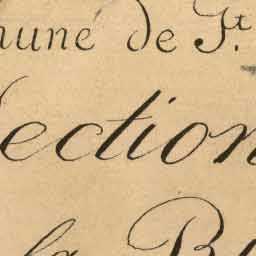 muné de St.
Section
la B